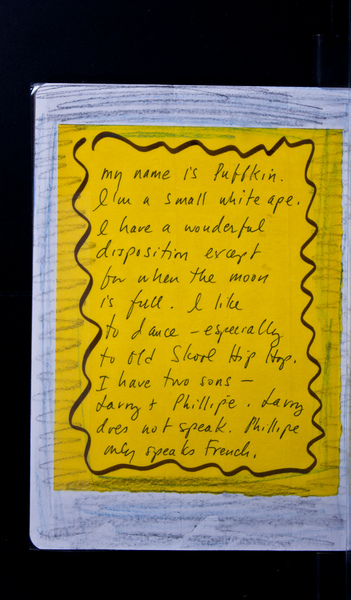 my name is Puffkin.
I'm a small white ape.
I have a wonderful
disposition except
for when the moon
is full. I like
to dance – especially
to old Skool Hip Hop.
I have two sons –
Larry + Phillipe. Larry
does not speak. Phillipe
only speaks French.